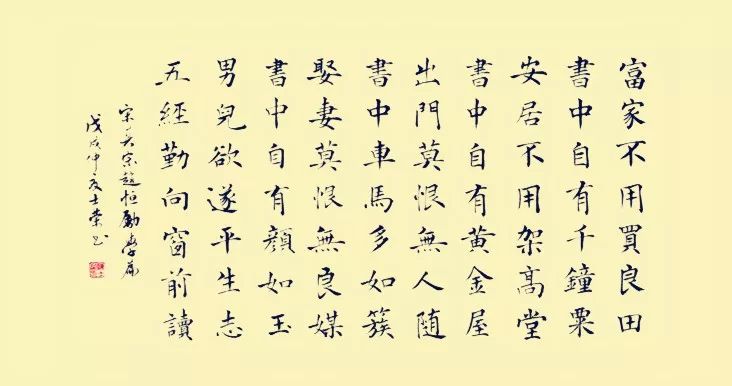 富家不用買良田
書中自有千鐘粟
安居不用架高堂
書中自有黃金屋
出門莫恨無人隨
書中車馬多如簇
娶妻莫恨無良媒
書中自有顏如玉
男兒欲遂平生志
五經勤向窗前讀
宋真宗趙恒勵學篇
戊戌仲夏士榮書